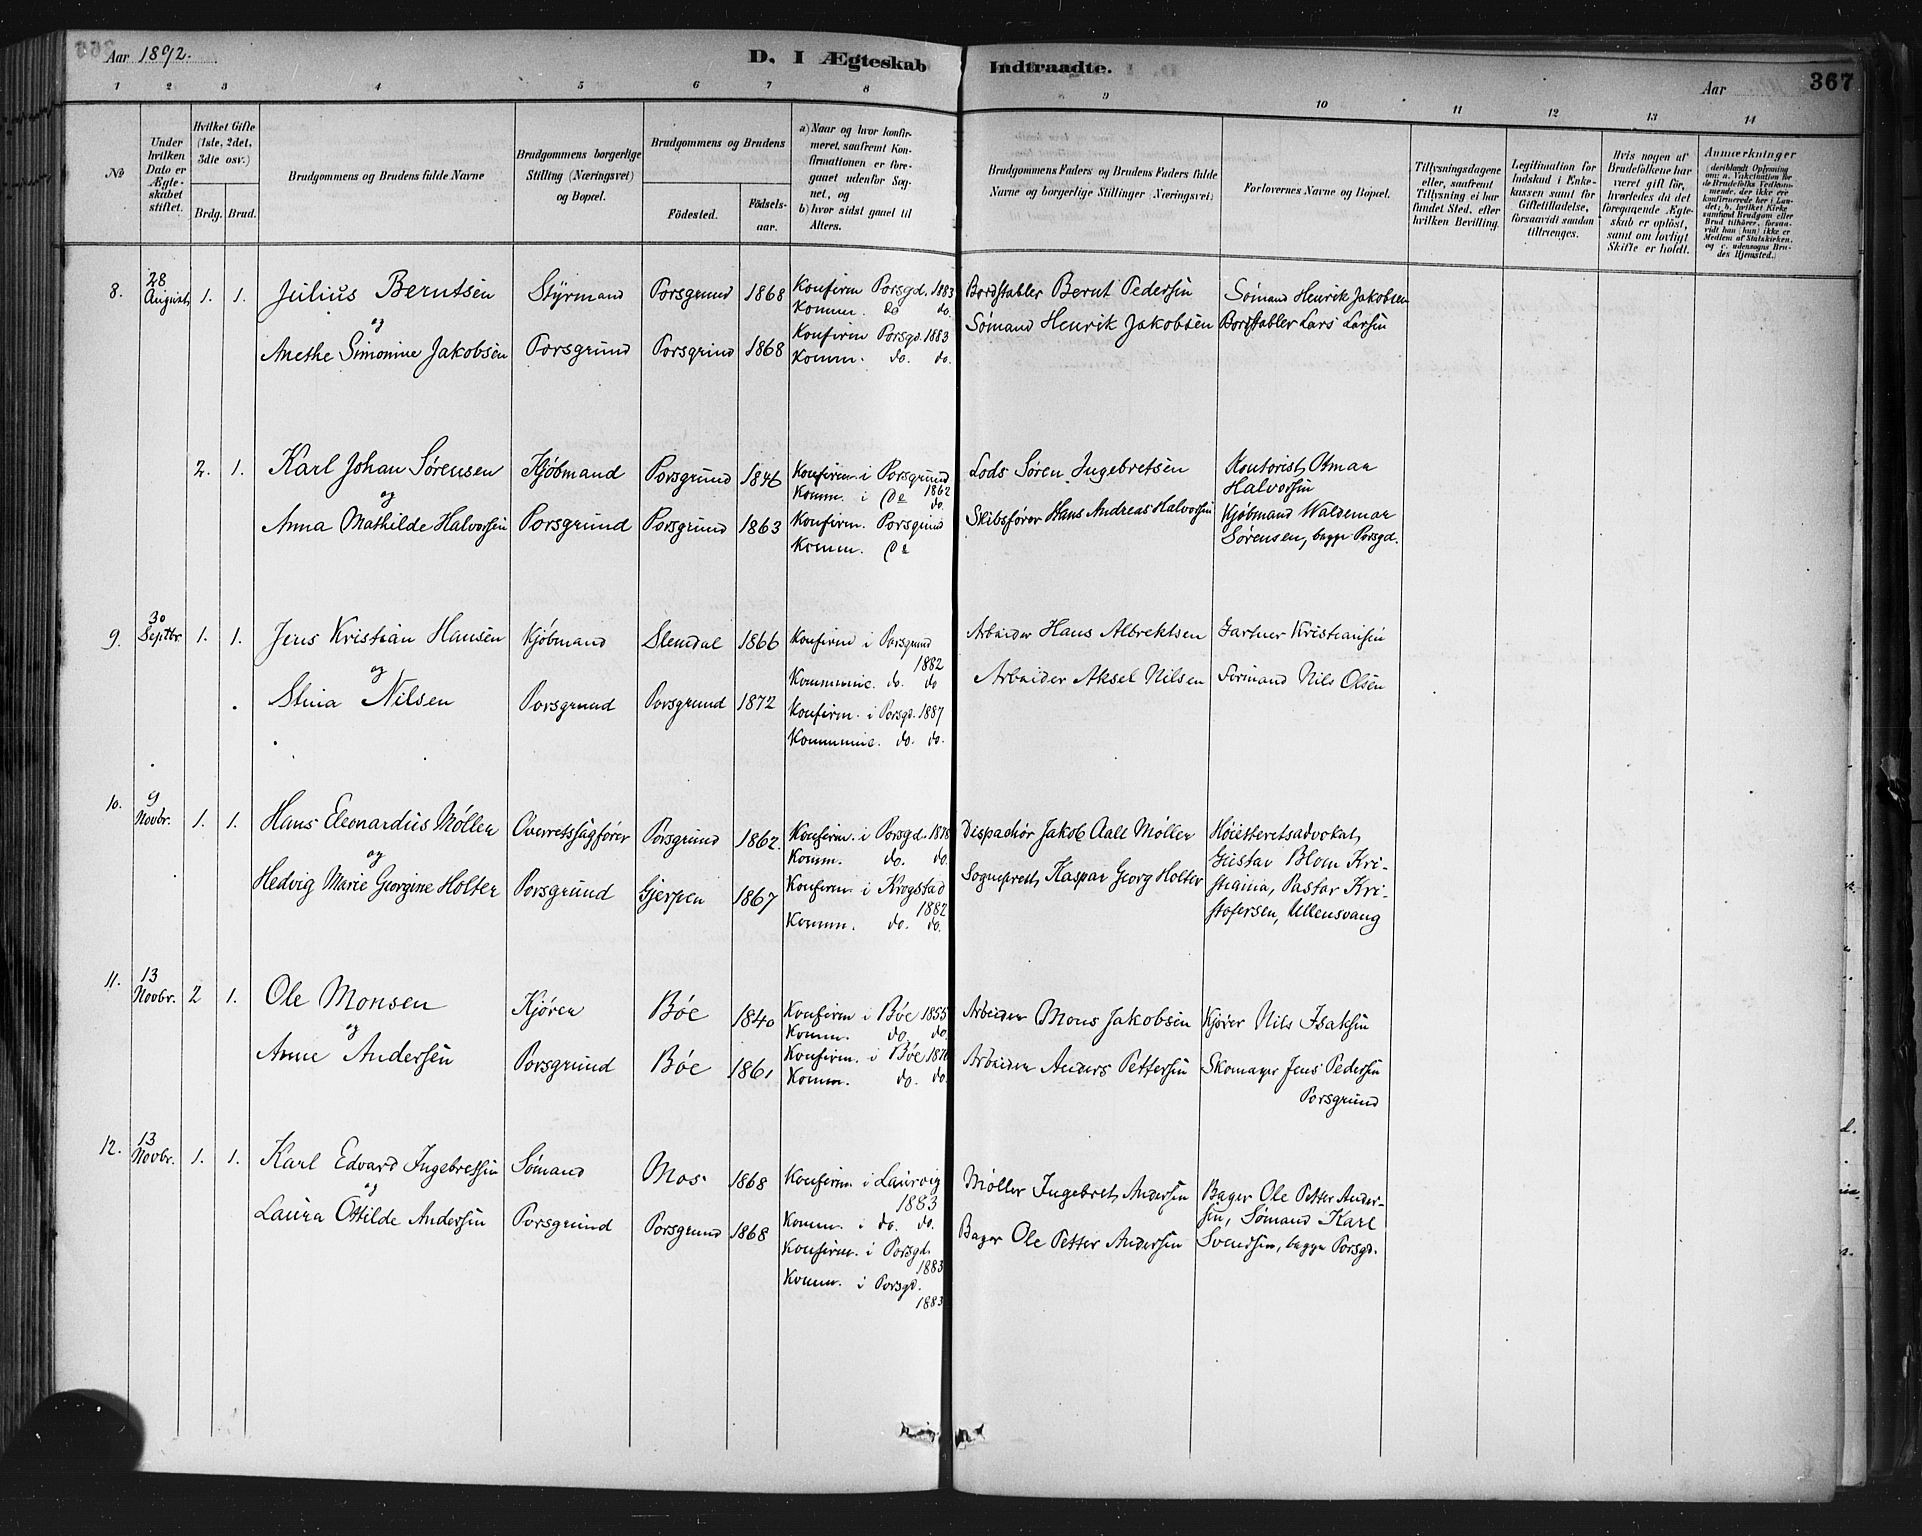 Aar 1892.
D. I Ægteskab Indtraadte.
Aar
367
1 2 3 4 5 6 7 8 9 10 11 12 13 14
No
Under hvilken Dato er Ægteskabet stiftet.
Hvilket Gifte (1ste, 2det, 3die osv.)
Brdg. Brud.
Brudgommens og Brudens fulde Navne
Brudgommens borgerlige Stilling (Næringsvei) og Bopæl.
Brudgommens og Brudens
Födested.
Födselsaar.
a) Naar og hvor konfirmeret, saafremt Konfirmationen er foregaaet udenfor Sognet, og
b) hvor sidst gaaet til Alters.
Brudgommens Faders og Brudens Faders fulde Navne og borgerlige Stillinger (Næringsvei)
Forlovernes Navne og Bopæl.
Tillysningsdagene eller, saafremt Tillysning ei har fundet Sted, efter hvilken Bevilling.
Legitimation for Indskud i Enkekassen samt for Giftetilladelse, forsaavidt saadan tiltrænges.
Hvis nogen af Brudefolkene har været gift før, hvorledes da det foregaaende Ægteskab er opløst, samt om lovligt Skifte er holdt.
Anmærkninger
8. 28 August 1. 1. Julius Berntsen Styrmand Porsgrund 1868 Konfirm Porsgd. 1883 Bordstabler Bernt Pedersen Sømand Henrik Jakobsen
og Komm. do do.
Anethe Simonine Jakobsen Porsgrund Porsgrund 1868 Konfirm Porsgd. 1883 Sømand Henrik Jakobsen Bordstabler Lars Larsen
Komm. do. do.
2. 1. Karl Johan Sørensen Kjøbmand Porsgrund 1846 Konfirm. i Porsgrund 1862 Lods Søren Ingebretsen Kontorist Otmar Halvorsen
og Komm. i do do.
Anna Mathilde Halvorsen Porsgrund Porsgrund 1863 Konfirm. Porsgrund Skibsfører Hans Andreas Halvorsen Kjøbmand Waldemar Sørensen, begge Porsgd.
Komm. do
9. 30 Septbr. 1. 1. Jens Kristian Hansen Kjøbmand Slemdal 1866 Konfirm i Porsgrund 1882 Arbeider Hans Albrektsen Gartner Kristiansen
og Kommunic. do. do
Stina Nilsen Porsgrund Porsgrund 1872 Konfirm. i Porsgd. 1887 Arbeider Aksel Nilsen Formand Nils Olsen
Kommunic. do. do.
10. 9 Novbr. 1. 1. Hans Eleonardus Møller Overretssagfører Porsgrund 1862. Konfirm. i Porsgd. 1878 Dispachør Jakob Aall Møller Høiesteretsadvokat,
og Komm. do. do. Gustav Blom Kri-
Hedvig Marie Georgine Holter Porsgrund Gjerpen 1867 Konfirm. i Krogstad 1882 Sogneprest Kaspar Georg Holter stiania, Pastor Kri-
Komm. do. do. stofersen, Ullensvang
11. 13 Novbr. 2 1. Ole Monsen Kjører Bøe 1840 Konfirm i Bøe 1855 Arbeider Mons Jakobsen Kjører Nils Isaksen
og Komm. do do.
Anne Andersen Porsgrund Bøe 1861 Konfirm. i Bøe 1876 Arbeider Anders Pettersen Skomager Jens Pedersen
Komm. do. do. Porsgrund
12. 13 Novbr. 1. 1. Karl Edvard Ingebretsen Sømand Mos 1868 Konfirm i Laurvig 1883 Møller Ingebret Andersen Bager Ole Petter Ander-
og Komm. i do. do. sen, Sømand Karl
Laura Ottilde Andersen Porsgrund Porsgrund 1868 Konfirm. i Porsgd. 1883 Bager Ole Petter Andersen Svendsen, begge Porsgd.
Komm. i Porsgd. 1883